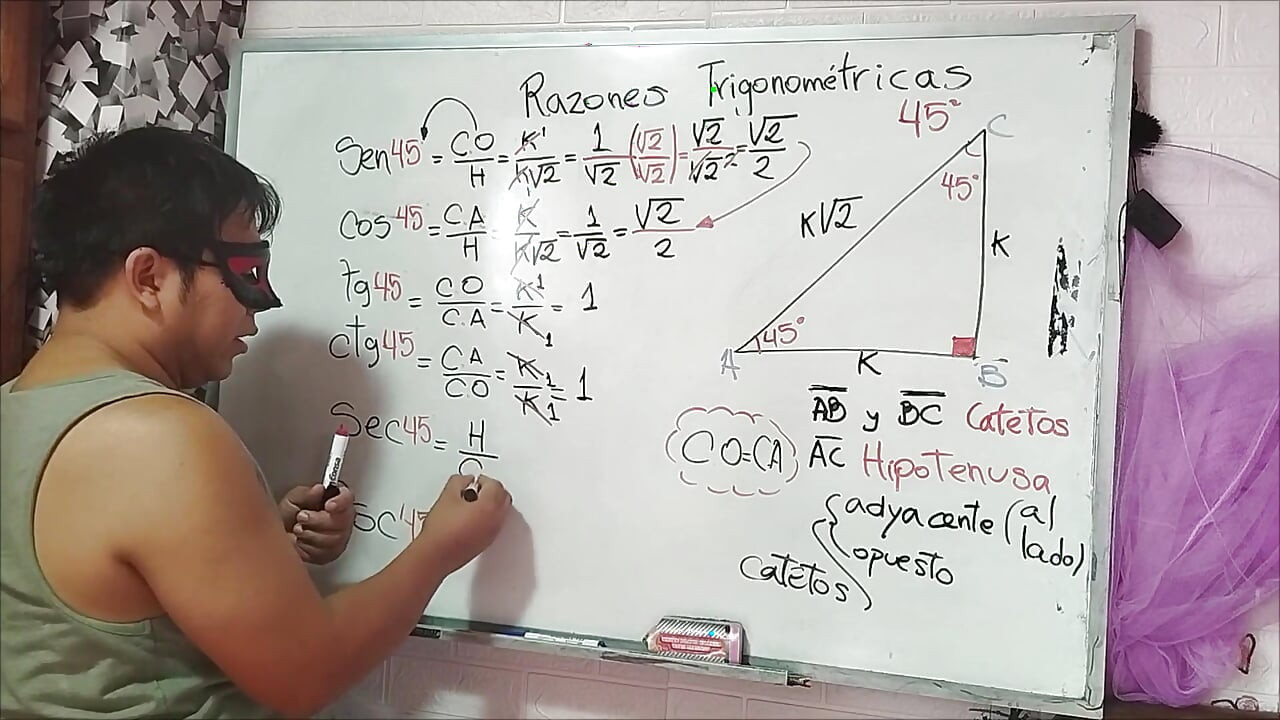 Razones Trigonométricas
Sen45° = CO/H = K¹/K√2 = 1/√2 (√2/√2) = √2/√2² = √2/2
Cos45 = C.A/H = K/K√2 = 1/√2 = √2/2
tg45 = CO/C.A = K¹/K₁ = 1
Ctg45 = CA/CO = K₁/K₁ = 1
Sec45 = H/C
sc 45
45°
C
45°
K√2
K
45°
A
K
B
AB y BC Catetos
CO=CA
AC Hipotenusa
Catetos
adyacente (al lado)
opuesto